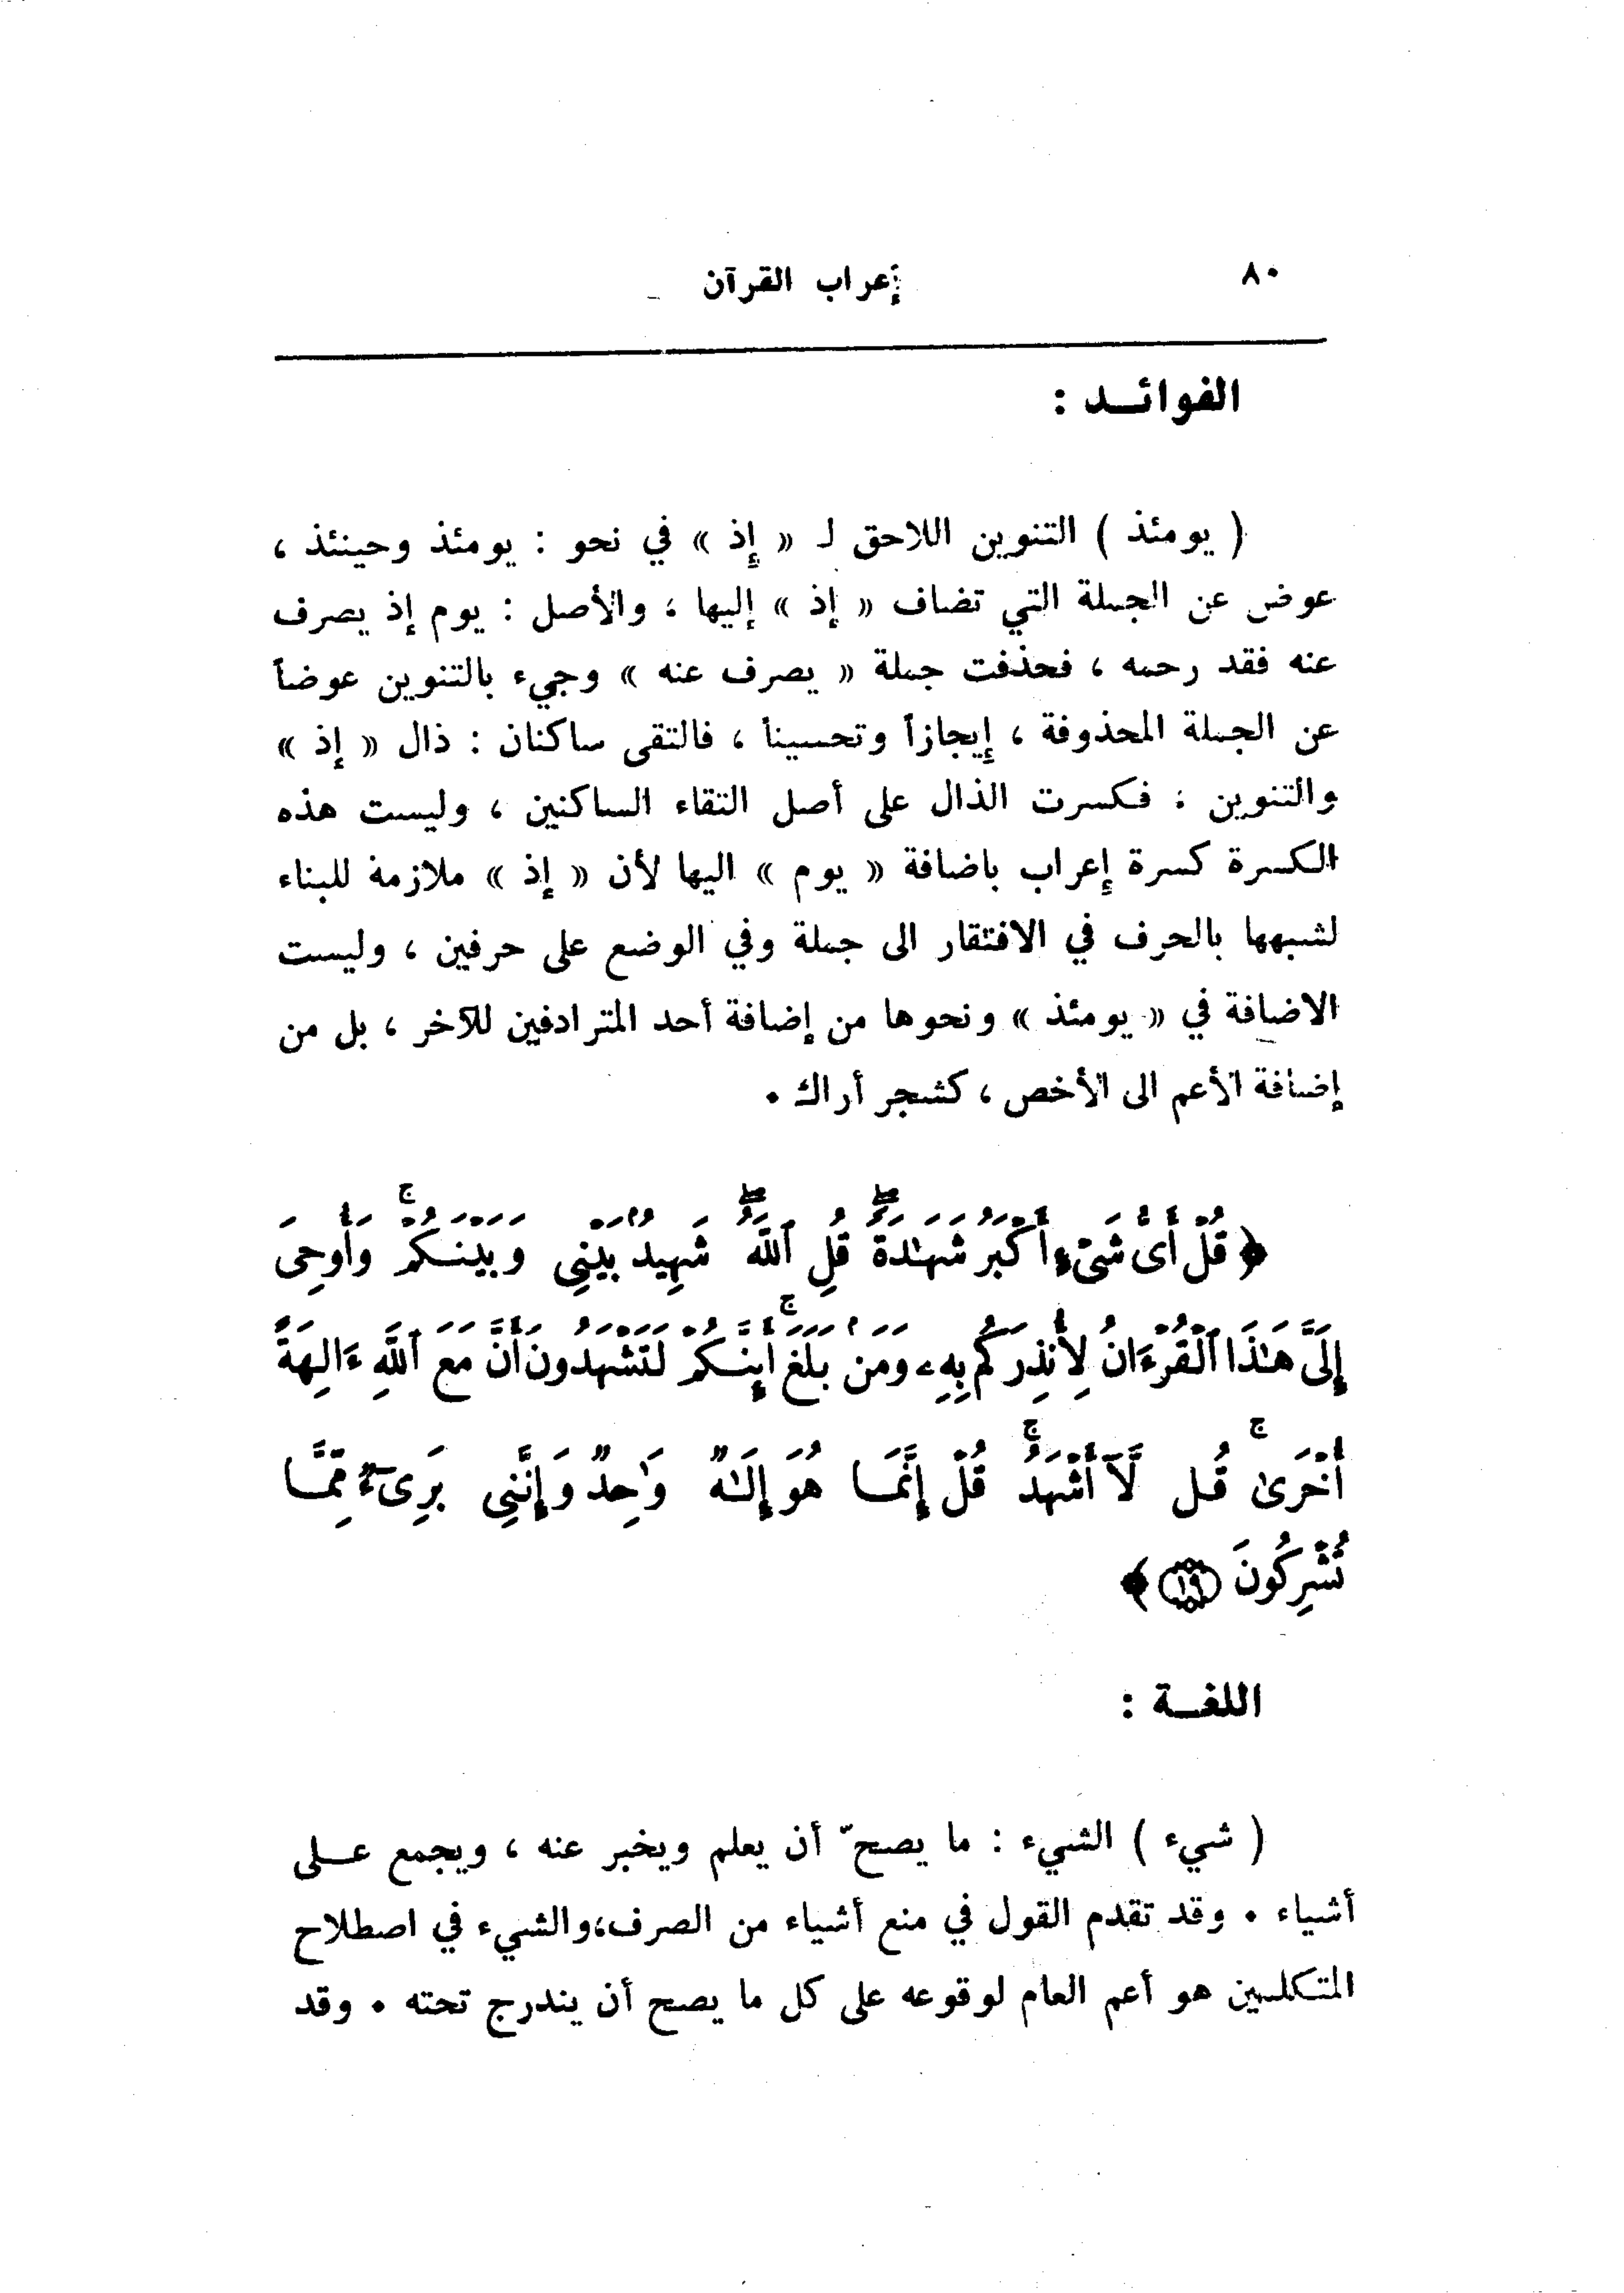 ٨٠
إعراب القرآن
الفوائـد :
( يومئذ ) التنوين اللاحق لـ « إذ » في نحو : يومئذ وحينئذ ،
عوض عن الجملة التي تضاف « إذ » إليها ، والأصل : يوم إذ يصرف
عنه فقد رحمه ، فحذفت جملة « يصرف عنه » وجيء بالتنوين عوضاً
عن الجملة المحذوفة ، إيجازاً وتحسيناً ، فالتقى ساكنان : ذال « إذ »
والتنوين ، فكسرت الذال على أصل التقاء الساكنين ، وليست هذه
الكسرة كسرة إعراب باضافة « يوم » اليها لأن « إذ » ملازمة للبناء
لشبهها بالحرف في الافتقار الى جملة وفي الوضع على حرفين ، وليست
الاضافة في « يومئذ » ونحوها من إضافة أحد المترادفين للآخر ، بل من
إضافة الأعم الى الأخص ، كشجر أراك .
﴿ قُلْ أَىُّ شَىْءٍ أَكْبَرُ شَهَـٰدَةً ۖ قُلِ ٱللَّهُ ۖ شَهِيدٌۢ بَيْنِى وَبَيْنَكُمْ ۚ وَأُوحِىَ
إِلَىَّ هَـٰذَا ٱلْقُرْءَانُ لِأُنذِرَكُم بِهِۦ وَمَنۢ بَلَغَ ۚ أَئِنَّكُمْ لَتَشْهَدُونَ أَنَّ مَعَ ٱللَّهِ ءَالِهَةً
أُخْرَىٰ ۚ قُل لَّآ أَشْهَدُ ۚ قُلْ إِنَّمَا هُوَ إِلَـٰهٌ وَٰحِدٌ وَإِنَّنِى بَرِىٓءٌ مِّمَّا
تُشْرِكُونَ ١٩ ﴾
اللغـة :
( شيء ) الشيء : ما يصحّ أن يعلم ويخبر عنه ، ويجمع عـلى
أشياء . وقد تقدم القول في منع أشياء من الصرف،والشيء في اصطلاح
المتكلمين هو أعم العام لوقوعه على كل ما يصح أن يندرج تحته . وقد